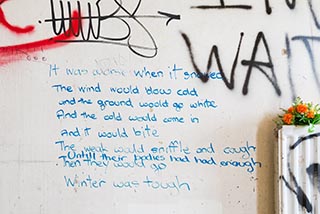 WAIT
It was worse when it snowed
The wind would blow cold
and the ground would go white
And the cold would come in
And it would bite
The weak would sniffle and cough
Until their bodies had had enough
Then they would go
Winter was tough